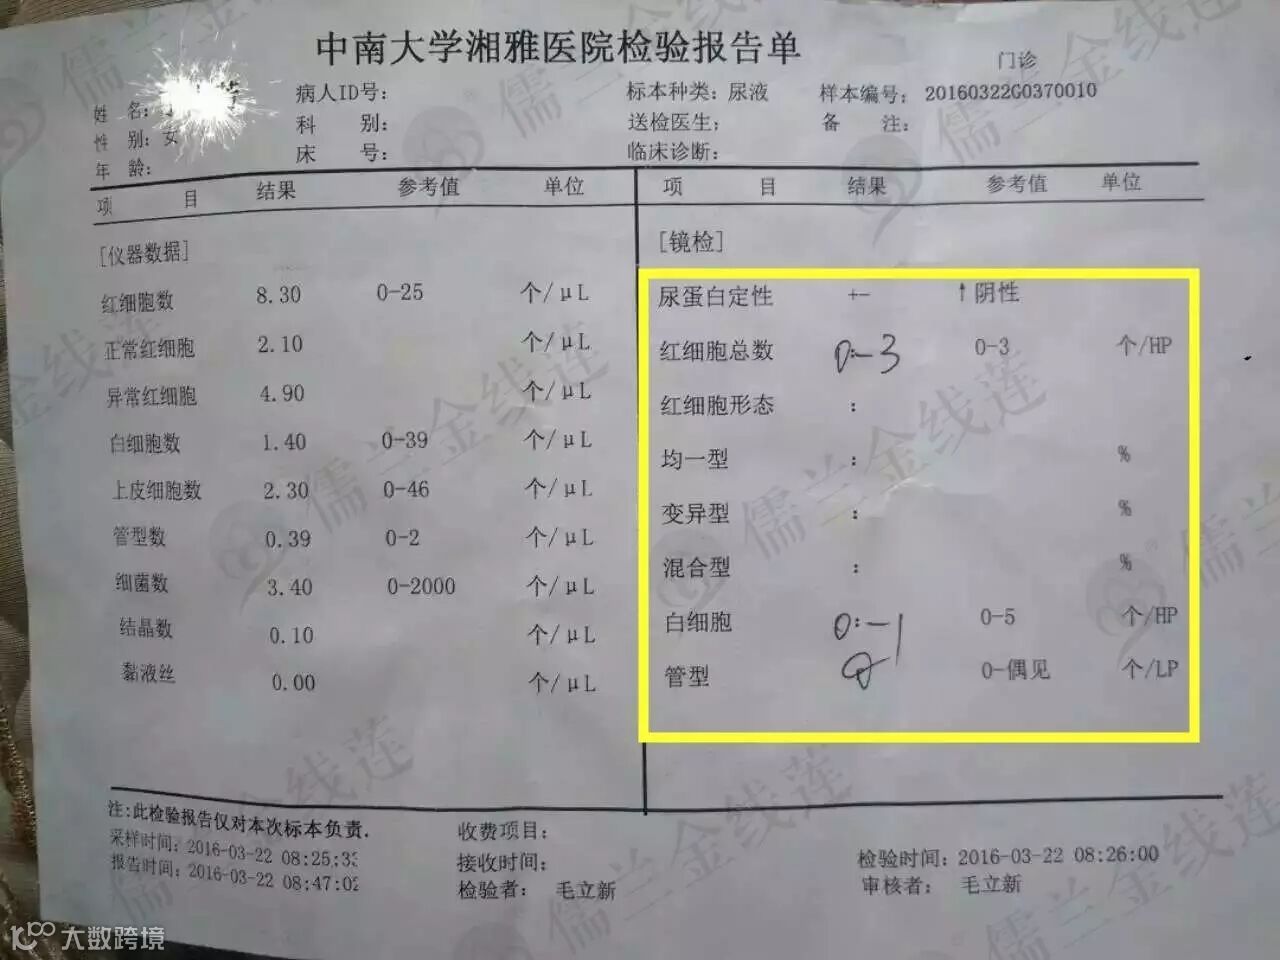 中南大学湘雅医院检验报告单
门诊
姓 名:
病人ID号:
标本种类: 尿液
样本编号: 20160322G0370010
性 别: 女
科 别:
送检医生:
备 注:
年 龄:
床 号:
临床诊断:
项 目 结果 参考值 单位
项 目 结果 参考值 单位
[仪器数据]
红细胞数 8.30 0-25 个/μL
正常红细胞 2.10 个/μL
异常红细胞 4.90 个/μL
白细胞数 1.40 0-39 个/μL
上皮细胞数 2.30 0-46 个/μL
管型数 0.39 0-2 个/μL
细菌数 3.40 0-2000 个/μL
结晶数 0.10 个/μL
黏液丝 0.00 个/μL
[镜检]
尿蛋白定性 +- ↑阴性
红细胞总数 0:-3 0-3 个/HP
红细胞形态 :
均一型 : %
变异型 : %
混合型 : %
白细胞 0:-1 0-5 个/HP
管型 0-偶见 个/LP
注:此检验报告仅对本次标本负责.
采样时间: 2016-03-22 08:25:33
报告时间: 2016-03-22 08:47:02
收费项目:
接收时间:
检验者: 毛立新
检验时间: 2016-03-22 08:26:00
审核者: 毛立新
儒兰金线莲
大数跨境